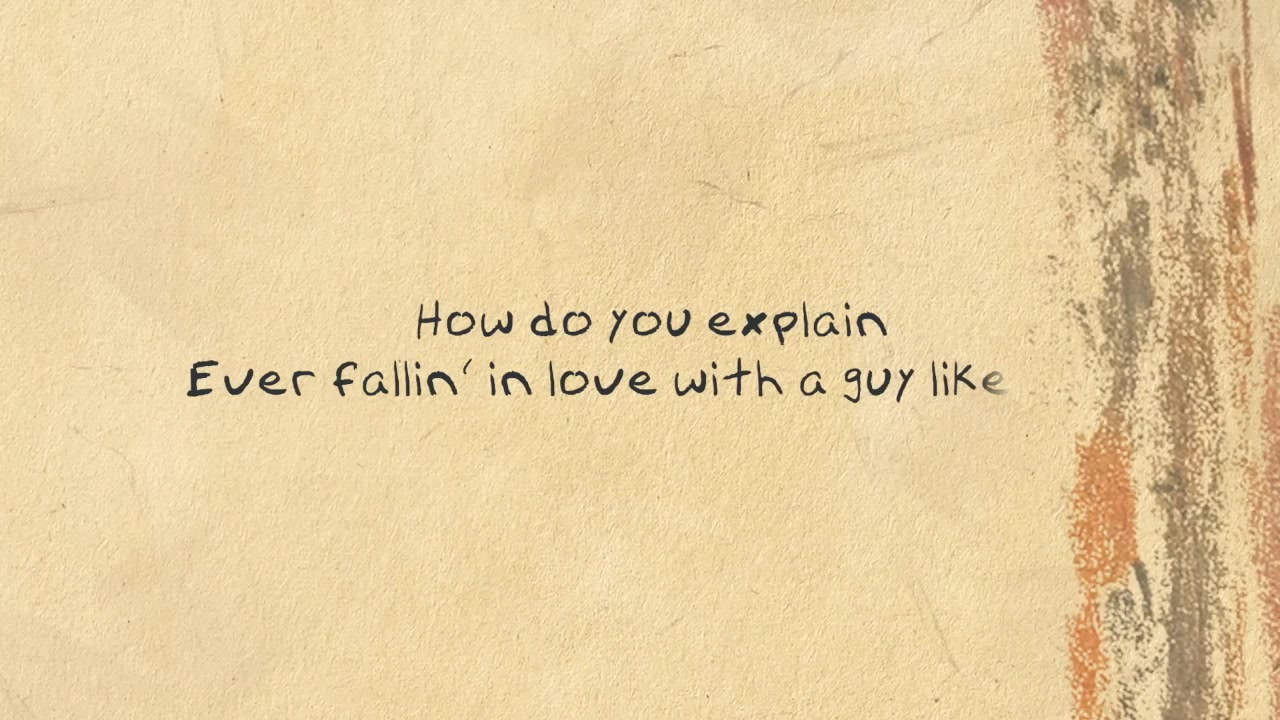 How do you explain
Ever fallin' in love with a guy like